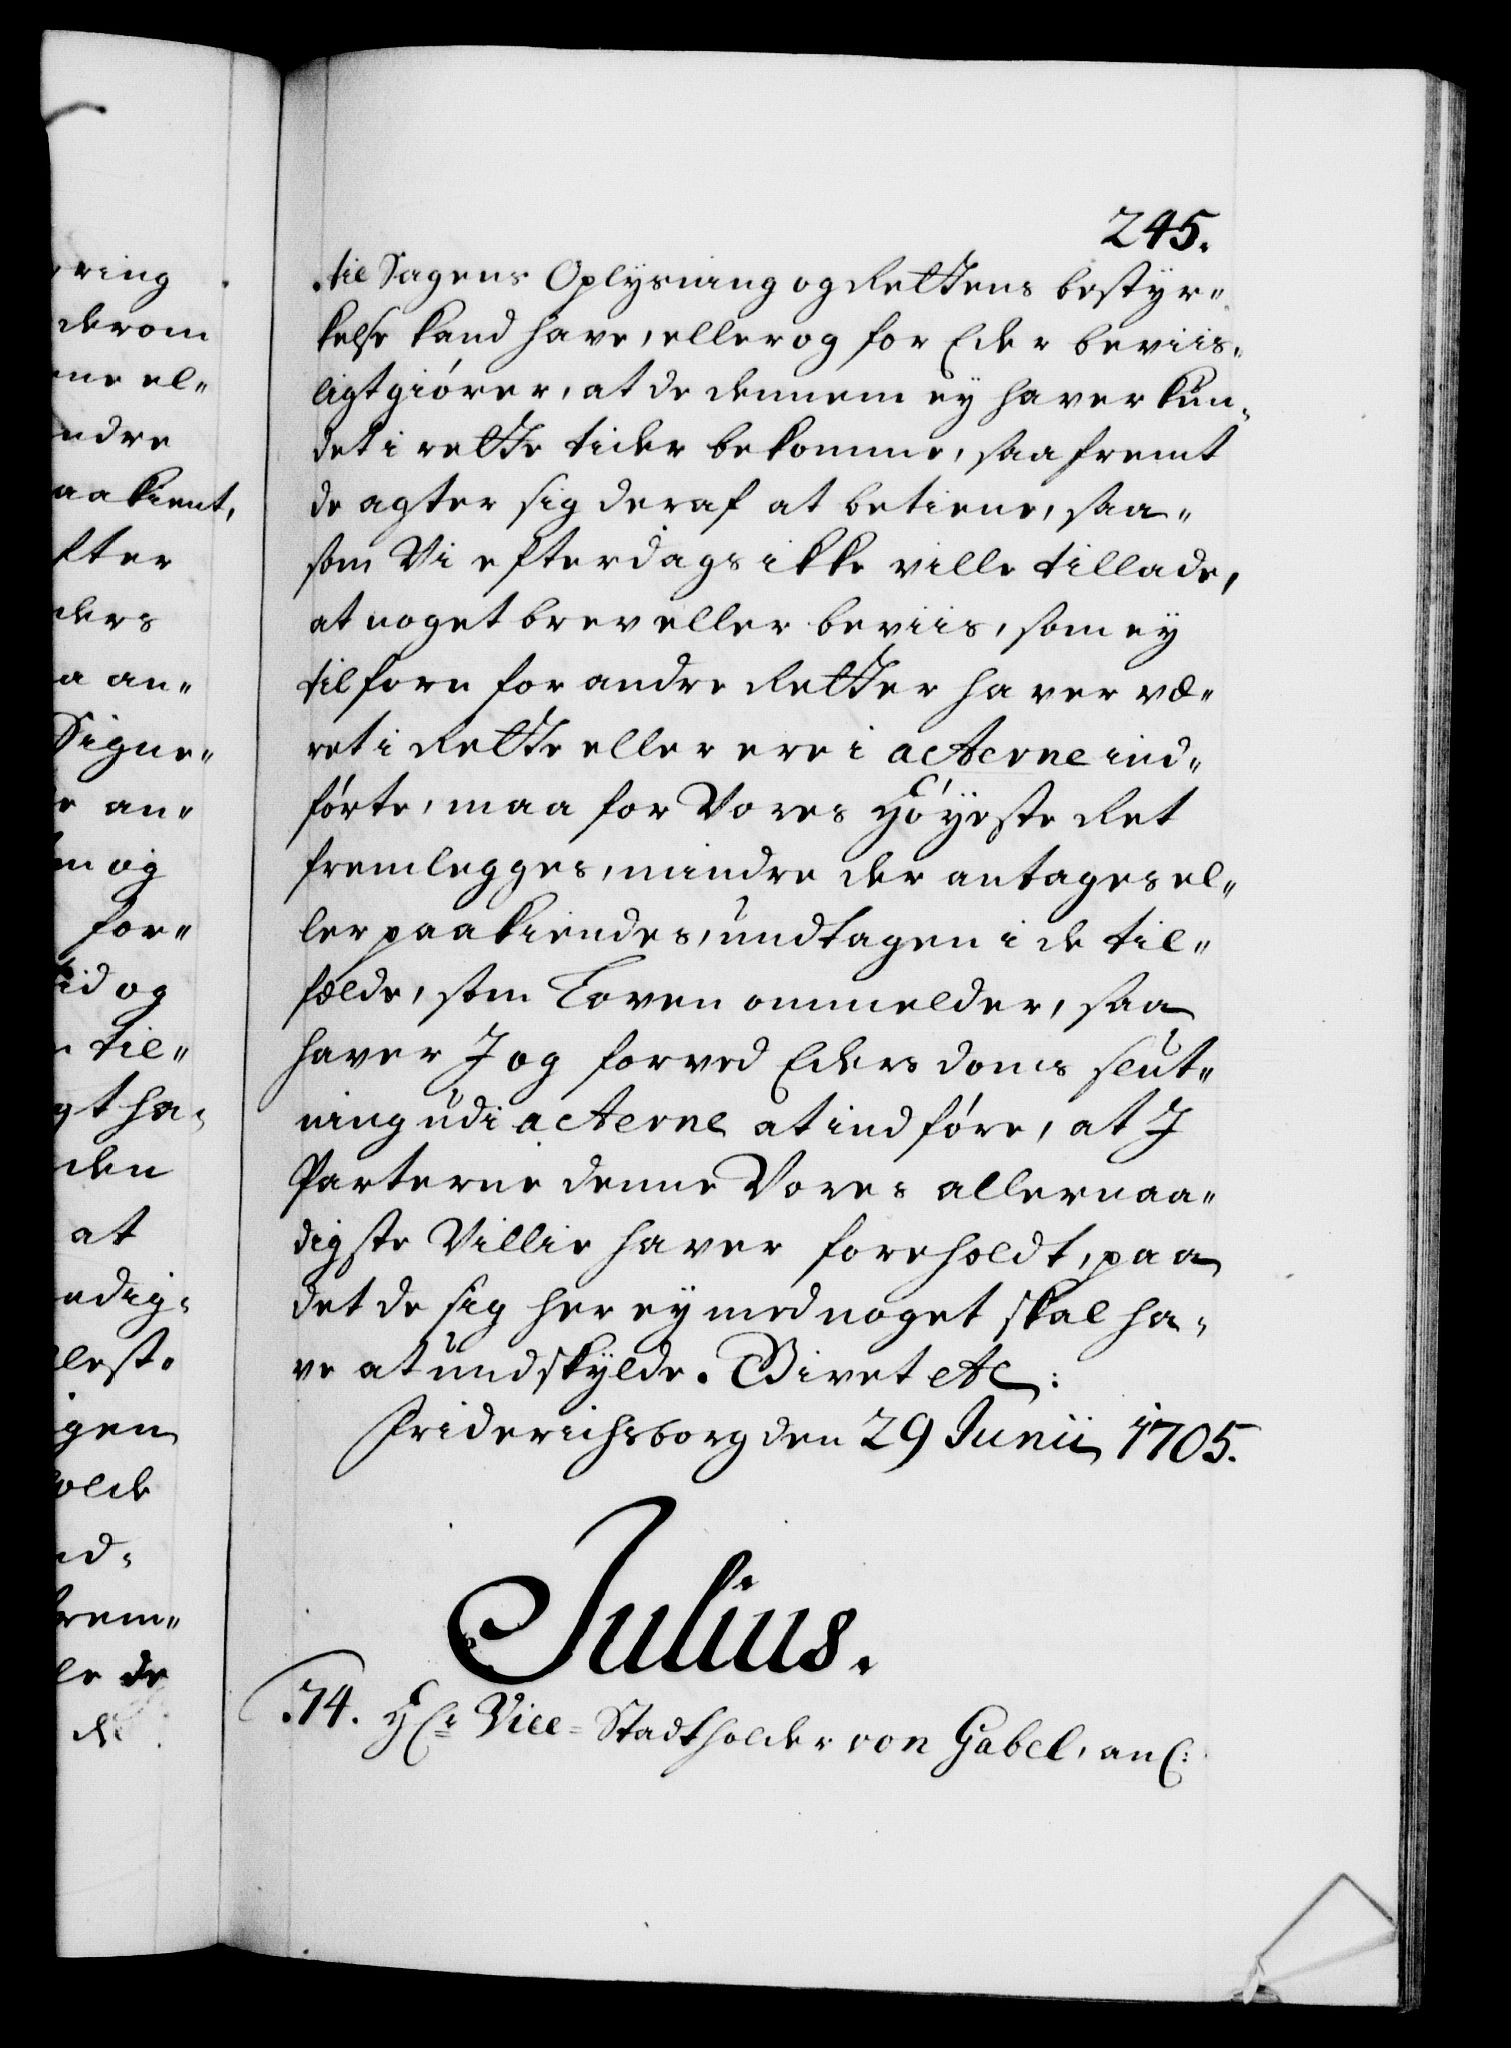 245.
til Sagens Oplysning og Rettens bestyr=
kelse kand have, eller og for Eder beviis=
ligt giörer, at de dennem ey haver kun=
det i rette tider bekomme, saa fremt
de agter sig deraf at betiene, saa=
som Vi efterdags ikke ville tillade,
at noget brev eller beviis, som ey
tilforn for andre Retter haver væ=
ret i Rette eller ere i acterne ind=
förte, maa for Vores Höyeste Ret
fremlegges, mindre der antages el=
ler paakiendes, undtagen i de til=
fælde, som Loven ommelder, saa
haver I og forved Eders doms slut=
ning udi acterne at indföre, at I
Parterne denne Vores allernaa=
digste Villie haver foreholdt, paa
det de sig her ey med noget skal ha=
ve at undskylde. Givet etc:
Friderichsborg den 29 Junii 1705.
Julius.
74. Hr Vice=Stadtholder von Gabel, an
ring
derom
ne el=
ndre
aakient,
fter
ders
a an=
Signe=
e an=
m og
for=
tid og
til=
gt ha=
den
at
ndig=
lest.
igen
nd=
frem=
le de